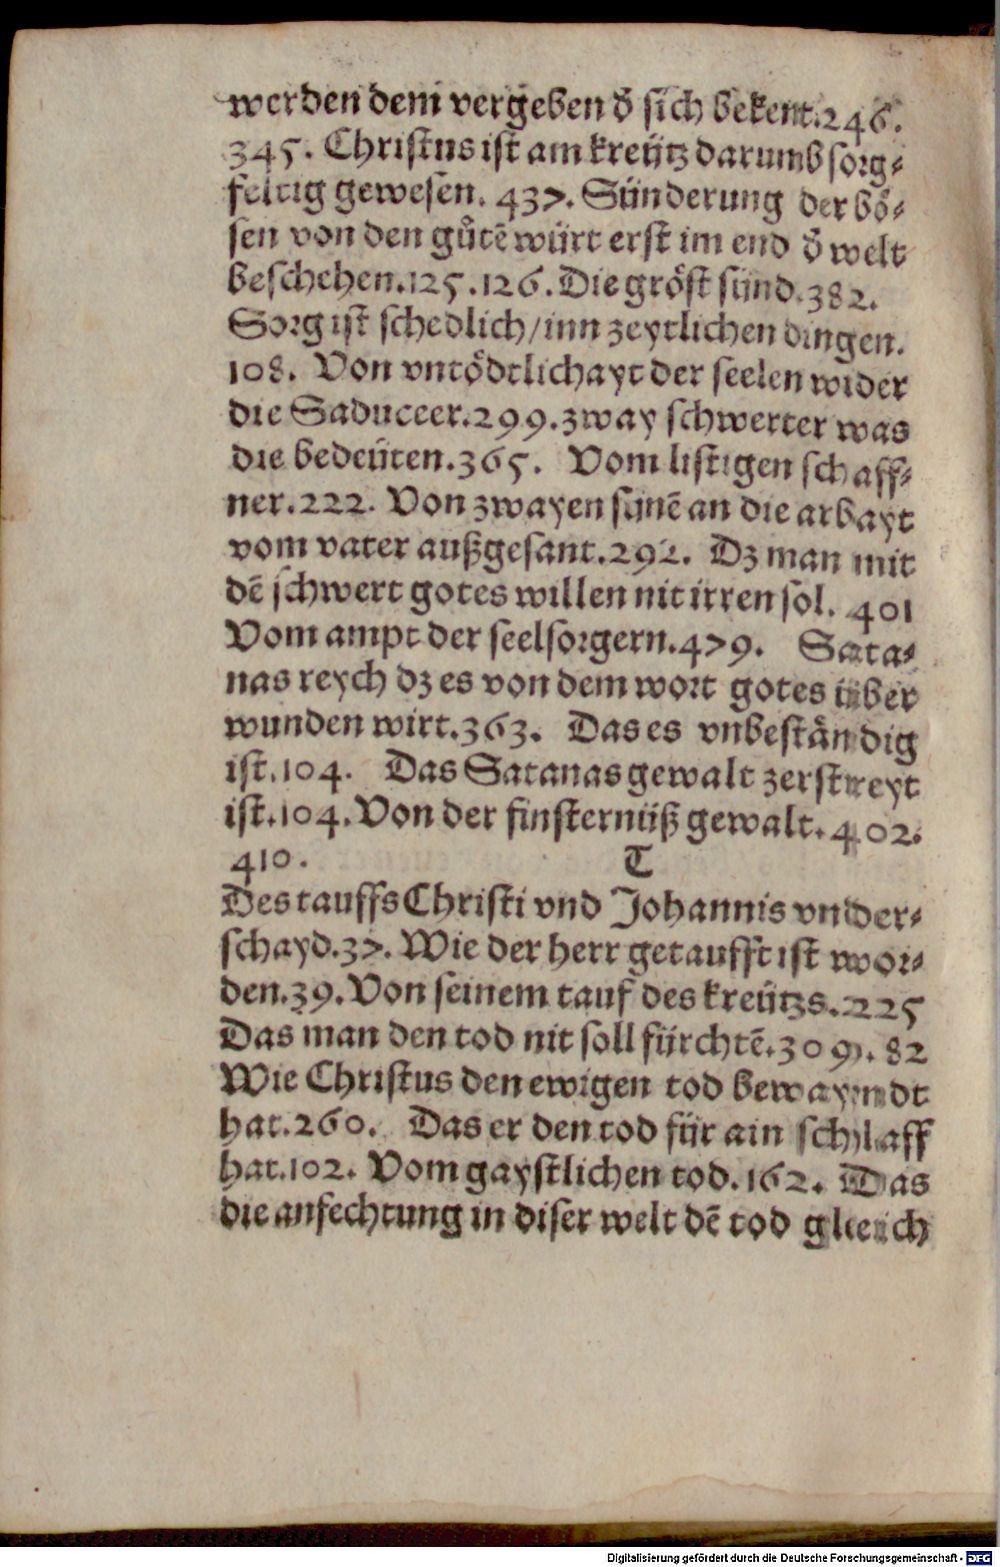 werden dem vergeben d̄ sich bekent.246.
345. Christus ist am kreütz darumb sorg⸗
feltig gewesen. 437. Sünderung der bö⸗
sen von den gůtē würt erst im end d̄ welt
beschehen.125.126. Die gröst sünd.382.
Sorg ist schedlich/inn zeytlichen dingen.
108. Von vntödtlichayt der seelen wider
die Saduceer.299.zway schwerter was
die bedeüten.365. Vom listigen schaff⸗
ner.222. Von zwayen sünē an die arbayt
vom vater außgesant.292. Dz man mit
dē schwert gotes willen nit irren sol. 401
Vom ampt der seelsorgern.479. Sata⸗
nas reych dz es von dem wort gotes über
wunden wirt.363. Das es vnbeständig
ist.104. Das Satanas gewalt zerstreyt
ist.104. Von der finsternüß gewalt.402.
410. T
Des tauffs Christi vnd Johannis vnder⸗
schayd.37. Wie der herr getaufft ist wor⸗
den.39. Von seinem tauf des kreützs.225
Das man den tod nit soll fürchtē.309. 82
Wie Christus den ewigen tod bewayndt
hat.260. Das er den tod für ain schlaff
hat.102. Vom gaystlichen tod.162. Das
die anfechtung in diser welt dē tod gleich
Digitalisierung gefördert durch die Deutsche Forschungsgemeinschaft - DFG